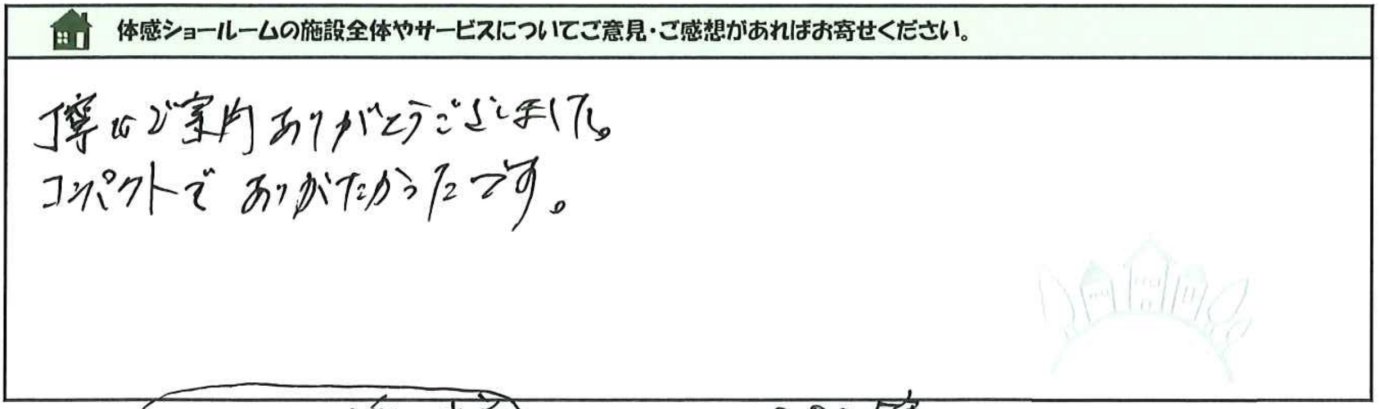 体感ショールームの施設全体やサービスについてご意見・ご感想があればお寄せください。
丁寧なご案内ありがとうございました。
コンパクトでありがたかったです。